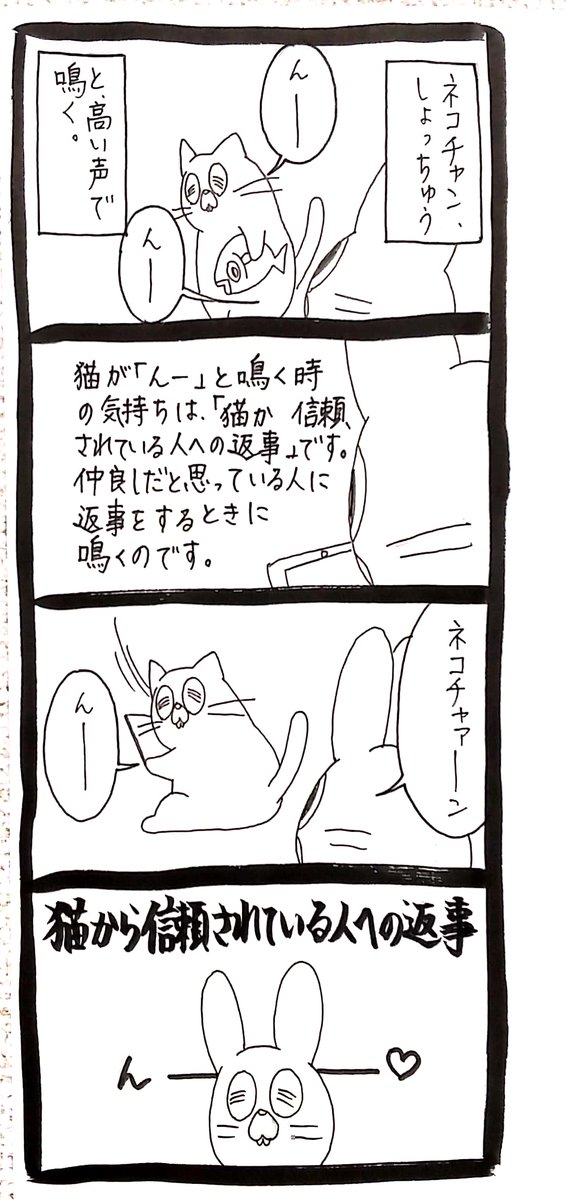 ネコチャン、
しょっちゅう
んー
んー
と、高い声で
鳴く。
猫が「んー」と鳴く時
の気持ちは、「猫か 信頼
されている人への返事」です。
仲良しだと思っている人に
返事をするときに
鳴くのです。
ネコチャァーン
んー
猫から信頼されている人への返事
んー♡